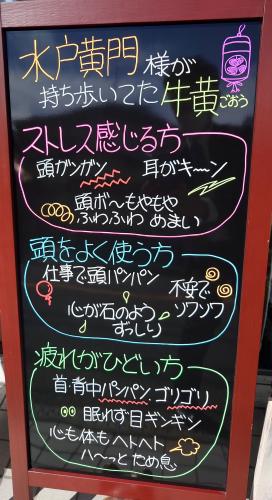 水戸黄門様が
持ち歩いてた牛黄ごおう
ストレス感じる方
頭ガンガン 耳がキーン
頭ボ〜もやもや
ふわふわ めまい
頭をよく使う方
仕事で頭パンパン
不安で
ソワソワ
心が石のよう
ずっしり
疲れがひどい方
首・背中パンパンゴリゴリ
眠れず目ギンギン
心も体もヘトヘト
ハ〜っとため息